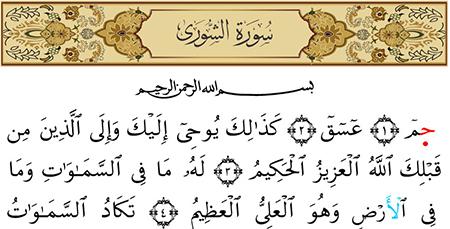 سُورَةُ الشُّورَىٰ
بِسْمِ اللَّهِ الرَّحْمَٰنِ الرَّحِيمِ
جمٓ ﴿١﴾ عٓسٓقٓ ﴿٢﴾ كَذَٰلِكَ يُوحِىٓ إِلَيْكَ وَإِلَى ٱلَّذِينَ مِن
قَبْلِكَ ٱللَّهُ ٱلْعَزِيزُ ٱلْحَكِيمُ ﴿٣﴾ لَهُۥ مَا فِى ٱلسَّمَـٰوَٰتِ وَمَا
فِى ٱلْأَرْضِ وَهُوَ ٱلْعَلِىُّ ٱلْعَظِيمُ ﴿٤﴾ تَكَادُ ٱلسَّمَـٰوَٰتُ